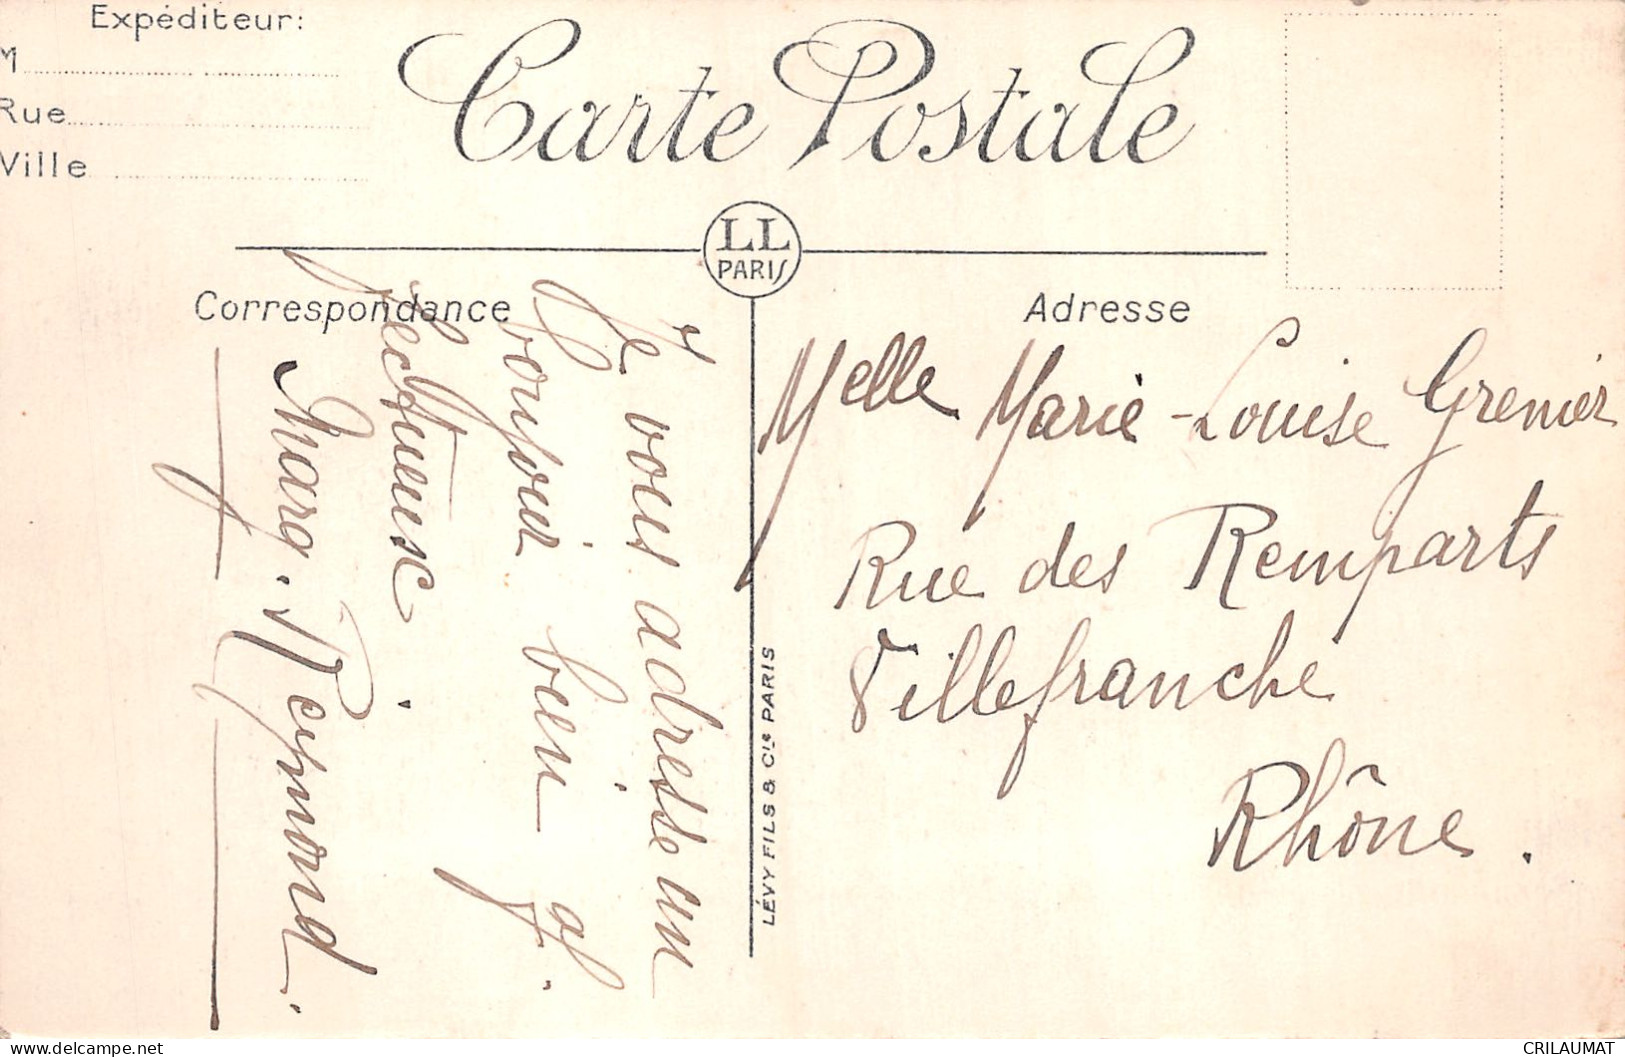 Expéditeur:
M
Rue
Ville
Carte Postale
LL
PARIS
Correspondance
Adresse
Je vous adresse un
bonjour bien af-
fectueuse.
Marg. Reymond.
Melle Marie-Louise Grenier
Rue des Remparts
Villefranche
Rhône.
LÉVY FILS & Cie PARIS
delcampe.net
CRILAUMAT